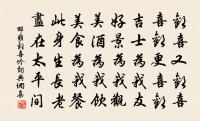 歡喜又歡喜
喜歡更喜歡
吉士為我友
好景為我觀
美酒為我飲
美食為我餐
此身生長老
盡在太平間
邵雍歡喜吟詞典網